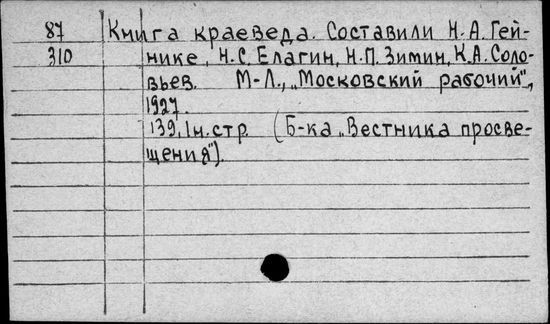 87 Книга краеведа. Составили Н.А.Гей-
310 нике, Н.С.Елагин, Н.П.Зимин, К.А.Соло-
вьев. М-Л., „Московский рабочий",
1927.
139,1н.стр. (Б-ка „Вестника просве-
щения").